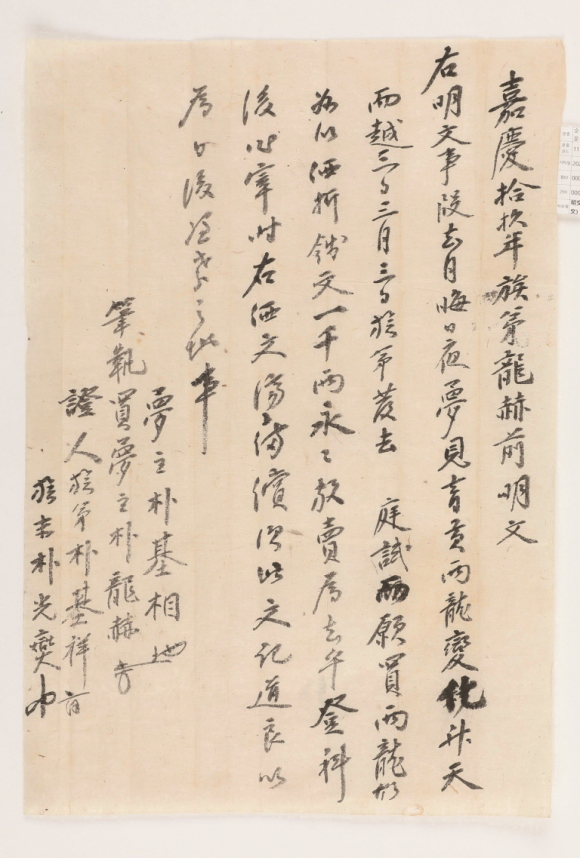 嘉慶拾玖年族弟龍赫前明文
右明文事段去月晦日夜夢見青黃兩龍變化升天
而越三日三月三日族弟發去 庭試而願買兩龍
故以價折錢文一千兩永永放賣爲去乎登科
後 宰時右價文 備償 此文記 良以
爲日後 之地事
夢主朴基相
筆執買夢主朴龍赫
證人族弟朴基祥
族末朴光燮